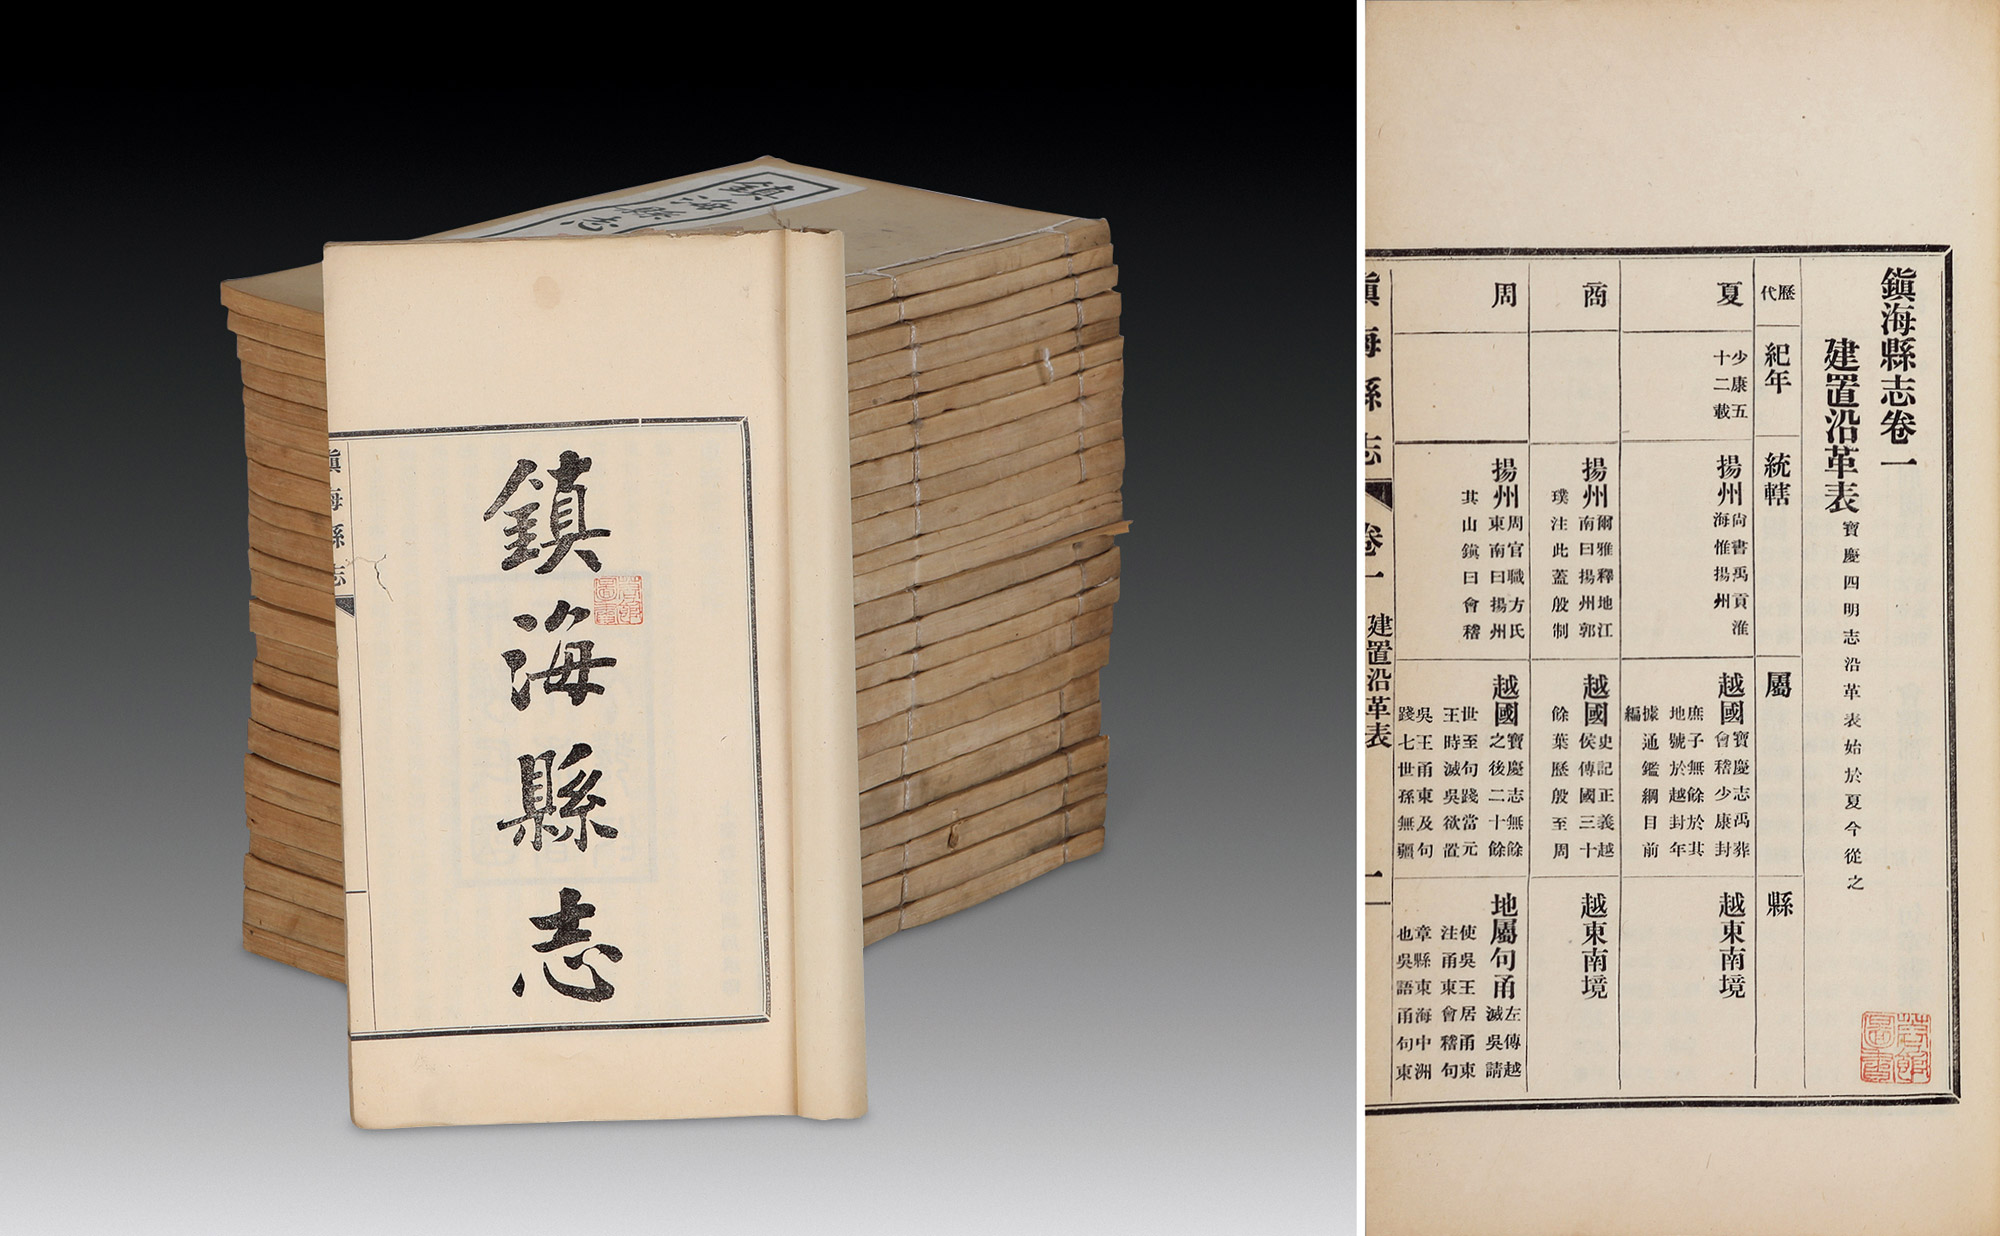 鎮海縣志
鎮海縣志
鎮海縣志
鎮海縣志卷一
建置沿革表 寶慶四明志沿革表始於夏今從之
歷代 紀年 統轄 屬 縣
夏 少康五十二載 揚州 尙書禹貢淮海惟揚州 越國 寶慶志禹葬會稽少康封庶子無餘於其地號於越封年據通鑑綱目前編 越東南境
商 揚州 爾雅釋地江南曰揚州郭璞注此蓋殷制 越國 史記正義越侯傳國三十餘葉歷殷至周 越東南境
周 揚州 周官職方氏東南曰揚州其山鎮曰會稽 越國 寶慶志無餘之後二十餘世至句踐當元王時滅吳欲置吳王甬東及句踐七世孫無疆 地屬句甬 左傳越滅吳請使吳王居甬東注甬東會稽句章縣東海中洲也吳語甬句東
鎮海縣志 卷一 建置沿革表 一